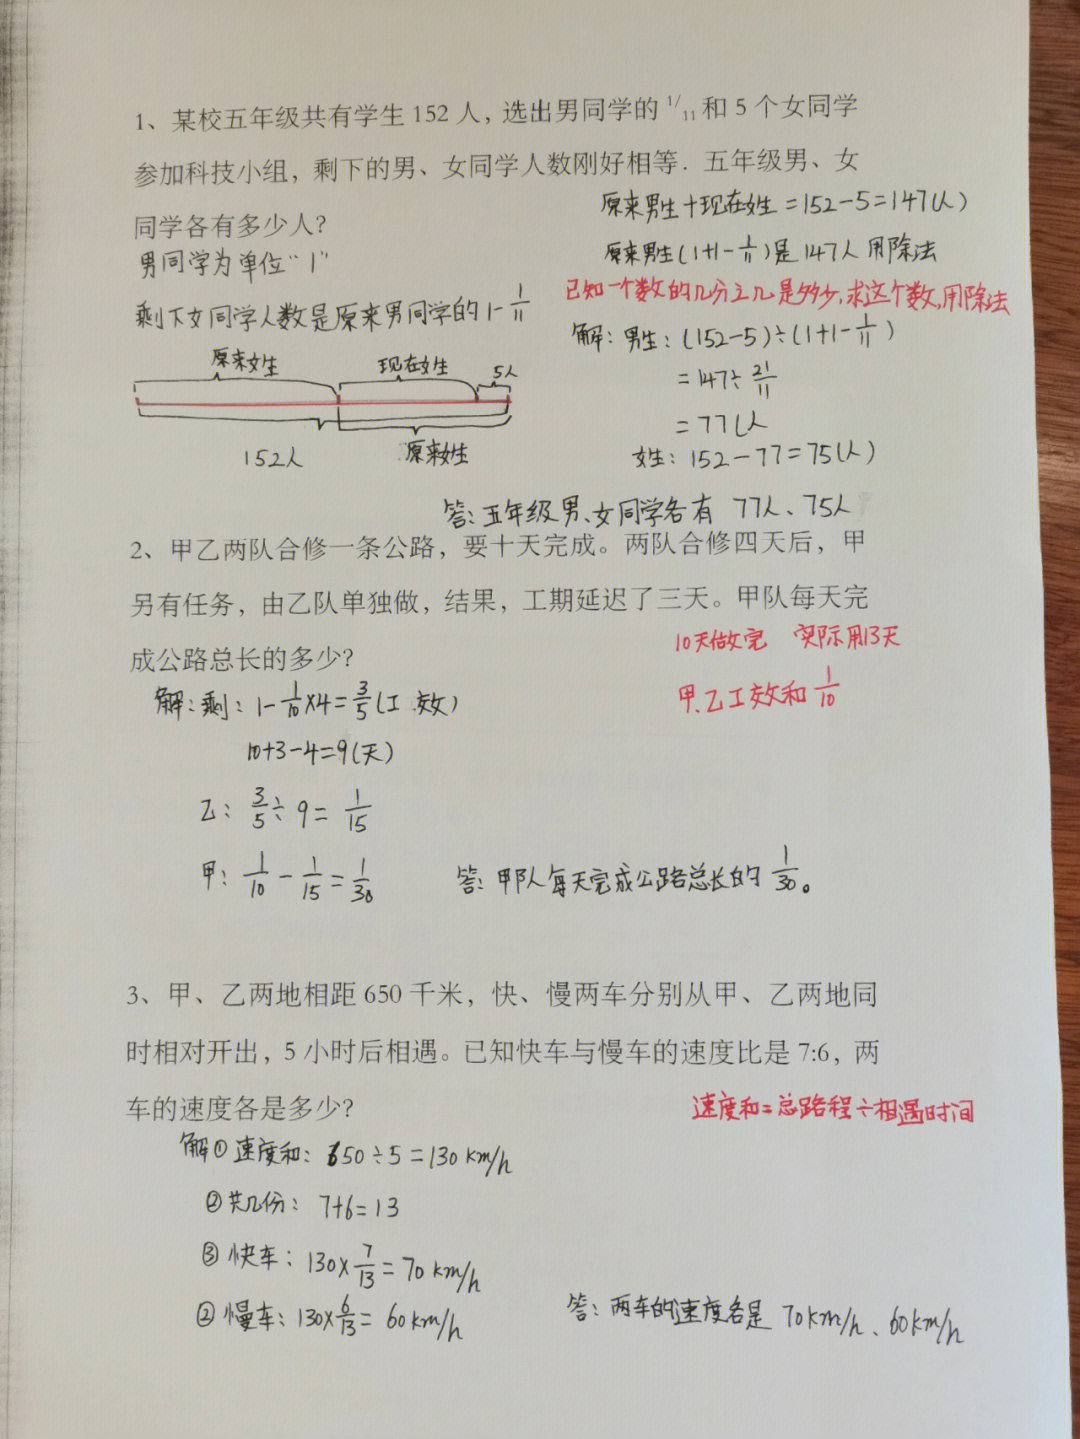 1、某校五年级共有学生 152 人, 选出男同学的 1/11 和 5 个女同学
参加科技小组, 剩下的男、女同学人数刚好相等. 五年级男、女
同学各有多少人?
男同学为单位“1”
剩下女同学人数是原来男同学的1-1/11
原来女生 现在女生 5人
152人 原来女生
原来男生+现在女生=152-5=147(人)
原来男生(1+1-1/11)是147人 用除法
已知一个数的几分之几是多少,求这个数,用除法
解:男生:(152-5)÷(1+1-1/11)
=147÷21/11
=77(人
女生:152-77=75(人)
答:五年级男、女同学各有 77人、75人
2、甲乙两队合修一条公路, 要十天完成。两队合修四天后, 甲
另有任务, 由乙队单独做, 结果, 工期延迟了三天。甲队每天完
成公路总长的多少?
10天做完 实际用13天
甲、乙工效和1/10
解:剩:1-1/10×4=3/5(工效)
10+3-4=9(天)
乙:3/5÷9=1/15
甲:1/10-1/15=1/30
答:甲队每天完成公路总长的1/30。
3、甲、乙两地相距 650 千米, 快、慢两车分别从甲、乙两地同
时相对开出, 5 小时后相遇。已知快车与慢车的速度比是 7:6, 两
车的速度各是多少?
速度和=总路程÷相遇时间
解①速度和:650÷5=130km/h
②共几份:7+6=13
③快车:130×7/13=70km/h
②慢车:130×6/13=60km/h
答:两车的速度各是 70km/h、60km/h